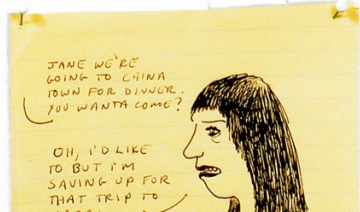 JANE WE'RE
GOING TO CHINA
TOWN FOR DINNER.
YOU WANTA COME?
OH, I'D LIKE
TO BUT I'M
SAVING UP FOR
THAT TRIP TO